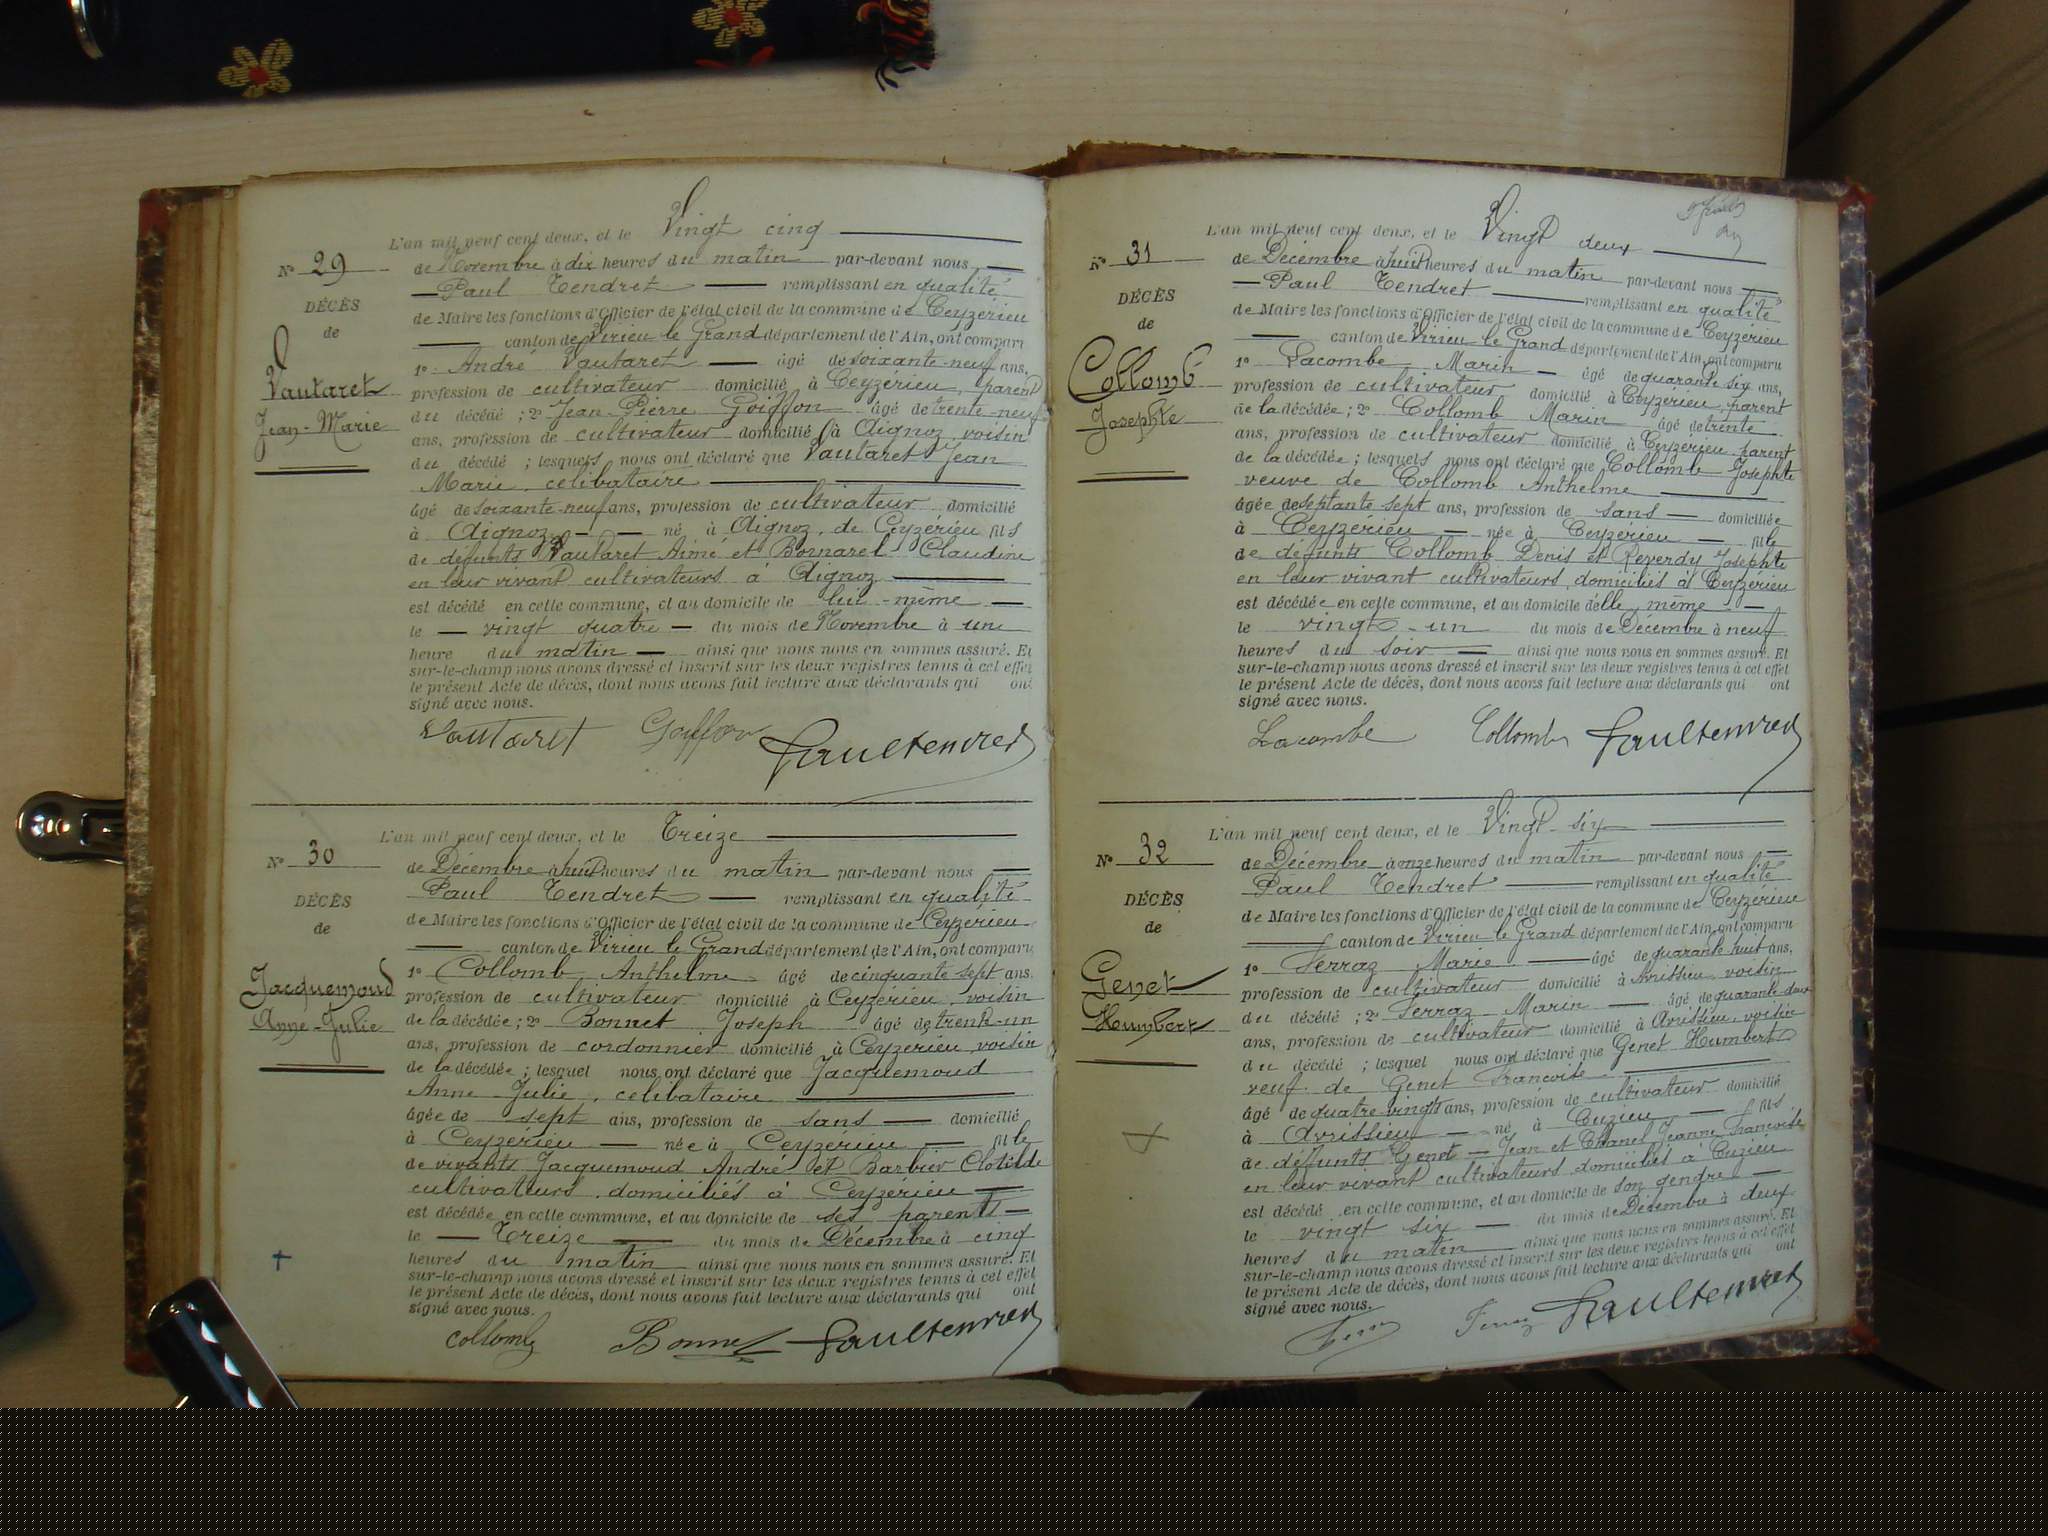 L'an mil neuf cent deux, et le Vingt cinq
N° 29
de Novembre à dix heures du matin par-devant nous
Paul Tendret remplissant en qualité
DÉCÈS
de Maire les fonctions d'Officier de l'état civil de la commune de Ceyzérieu
de
canton de Virieu le Grand département de l'Ain, ont comparu
1° André Vautaret âgé de soixante-neuf ans,
Vautaret
profession de cultivateur domicilié à Ceyzérieu, parent
Jean-Marie
du décédé ; 2° Jean-Pierre Goiffon âgé de trente-neuf
ans, profession de cultivateur domicilié à Aignoz voisin
du décédé ; lesquels nous ont déclaré que Vautaret Jean
Marie, célibataire
âgé de soixante-neuf ans, profession de cultivateur domicilié
à Aignoz né à Aignoz, de Ceyzérieu fils
de défunts Vautaret Aimé et Bornarel Claudine
en leur vivant cultivateurs à Aignoz
est décédé en cette commune, et au domicile de lui-même
le vingt quatre du mois de Novembre à une
heure du matin ainsi que nous nous en sommes assuré. Et
sur-le-champ nous avons dressé et inscrit sur les deux registres tenus à cet effet
le présent Acte de décès, dont nous avons fait lecture aux déclarants qui ont
signé avec nous.
Vautaret Goiffon Paul Tendret
L'an mil neuf cent deux, et le Treize
N° 30
de Décembre à huit heures du matin par-devant nous
Paul Tendret remplissant en qualité
DÉCÈS
de Maire les fonctions d'Officier de l'état civil de la commune de Ceyzérieu
de
canton de Virieu le Grand département de l'Ain, ont comparu
Jacquemoud
1° Collomb Anthelme âgé de cinquante sept ans,
profession de cultivateur domicilié à Ceyzérieu, voisin
Anne-Julie
de la décédée ; 2° Bonnet Joseph âgé de trente-un
ans, profession de cordonnier domicilié à Ceyzérieu, voisin
de la décédée ; lesquel nous ont déclaré que Jacquemoud
Anne-Julie, célibataire
âgée de sept ans, profession de sans domicilié
à Ceyzérieu née à Ceyzerieu fille
de vivants Jacquemoud André et Barbier Clotilde
cultivateurs, domiciliés à Ceyzérieu
est décédée en cette commune, et au domicile de ses parents
le Treize du mois de Décembre à cinq
heures du matin ainsi que nous nous en sommes assuré. Et
sur-le-champ nous avons dressé et inscrit sur les deux registres tenus à cet effet
le présent Acte de décès, dont nous avons fait lecture aux déclarants qui ont
signé avec nous.
Collomb Bonnet Paul Tendret
L'an mil neuf cent deux, et le Vingt deux
N° 31
de Décembre à huit heures du matin par-devant nous
Paul Tendret remplissant en qualité
DÉCÈS
de Maire les fonctions d'Officier de l'état civil de la commune de Ceyzérieu
de
canton de Virieu le Grand département de l'Ain, ont comparu
1° Lacombe Marin âgé de quarante six ans,
Collomb
profession de cultivateur domicilié à Ceyzérieu, parent
Josephte
de la décédée ; 2° Collomb Marin âgé de trente
ans, profession de cultivateur domicilié à Ceyzérieu, parent
de la décédée ; lesquels nous ont déclaré que Collomb Josephte
veuve de Collomb Anthelme
âgée de septante sept ans, profession de sans domiciliée
à Ceyzérieu née à Ceyzérieu fille
de défunts Collomb Denis et Reverdy Josephte
en leur vivant cultivateurs, domiciliés à Ceyzérieu
est décédée en cette commune, et au domicile d'elle même
le vingt-un du mois de Décembre à neuf
heures du soir ainsi que nous nous en sommes assuré. Et
sur-le-champ nous avons dressé et inscrit sur les deux registres tenus à cet effet
le présent Acte de décès, dont nous avons fait lecture aux déclarants qui ont
signé avec nous.
Lacombe Collomb Paul Tendret
L'an mil neuf cent deux, et le Vingt-six
N° 32
de Décembre à onze heures du matin par-devant nous
Paul Tendret remplissant en qualité
DÉCÈS
de Maire les fonctions d'Officier de l'état civil de la commune de Ceyzérieu
de
canton de Virieu le Grand département de l'Ain, ont comparu
1° Ferraz Marie âgé de quarante huit ans,
Genet
profession de cultivateur domicilié à Avrissieu, voisin
Humbert
du décédé ; 2° Ferraz Marin âgé de quarante deux
ans, profession de cultivateur domicilié à Avrissieu, voisin
du décédé ; lesquel nous ont déclaré que Genet Humbert
veuf de Genet Françoise
âgé de quatre vingts ans, profession de cultivateur domicilié
à Avrissieu né à Cuzieu fils
de défunts Genet Jean et Chanel Jeanne Françoise
en leur vivant cultivateurs domiciliés à Cuzieu
est décédé en cette commune, et au domicile de son gendre
le vingt six du mois de Décembre à deux
heures du matin ainsi que nous nous en sommes assuré. Et
sur-le-champ nous avons dressé et inscrit sur les deux registres tenus à cet effet
le présent Acte de décès, dont nous avons fait lecture aux déclarants qui ont
signé avec nous.
Ferraz Paul Tendret